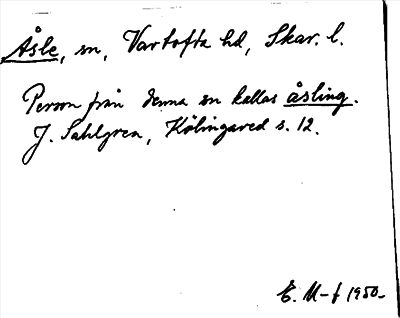 Åsle, sn, Vartofta hd, Skar. l.
Person från denna sn kallas åsling.
J. Sahlgren, Kölingared s. 12.
E. M-f 1950